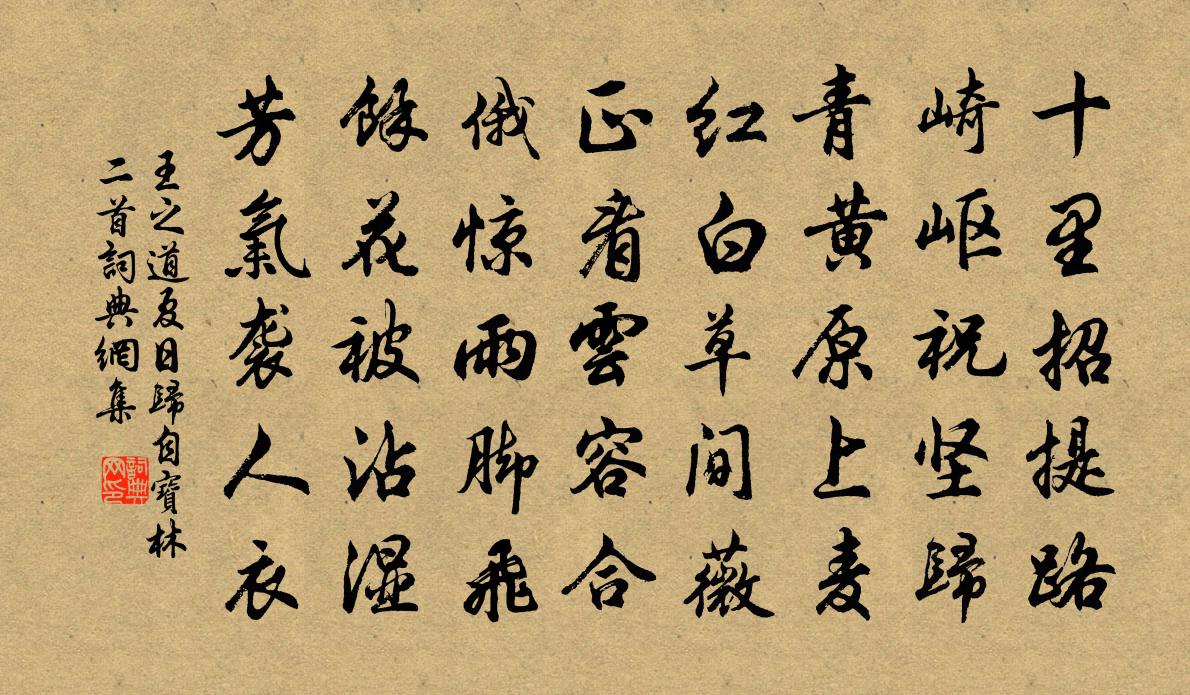 十里招提路
崎岖祝坚歸
青黄原上麦
红白草间薇
正看雲容合
俄惊雨脚飛
餘花被沾湿
芳氣袭人衣
王之道夏日歸自寶林
二首詞典網集
詞典
网印